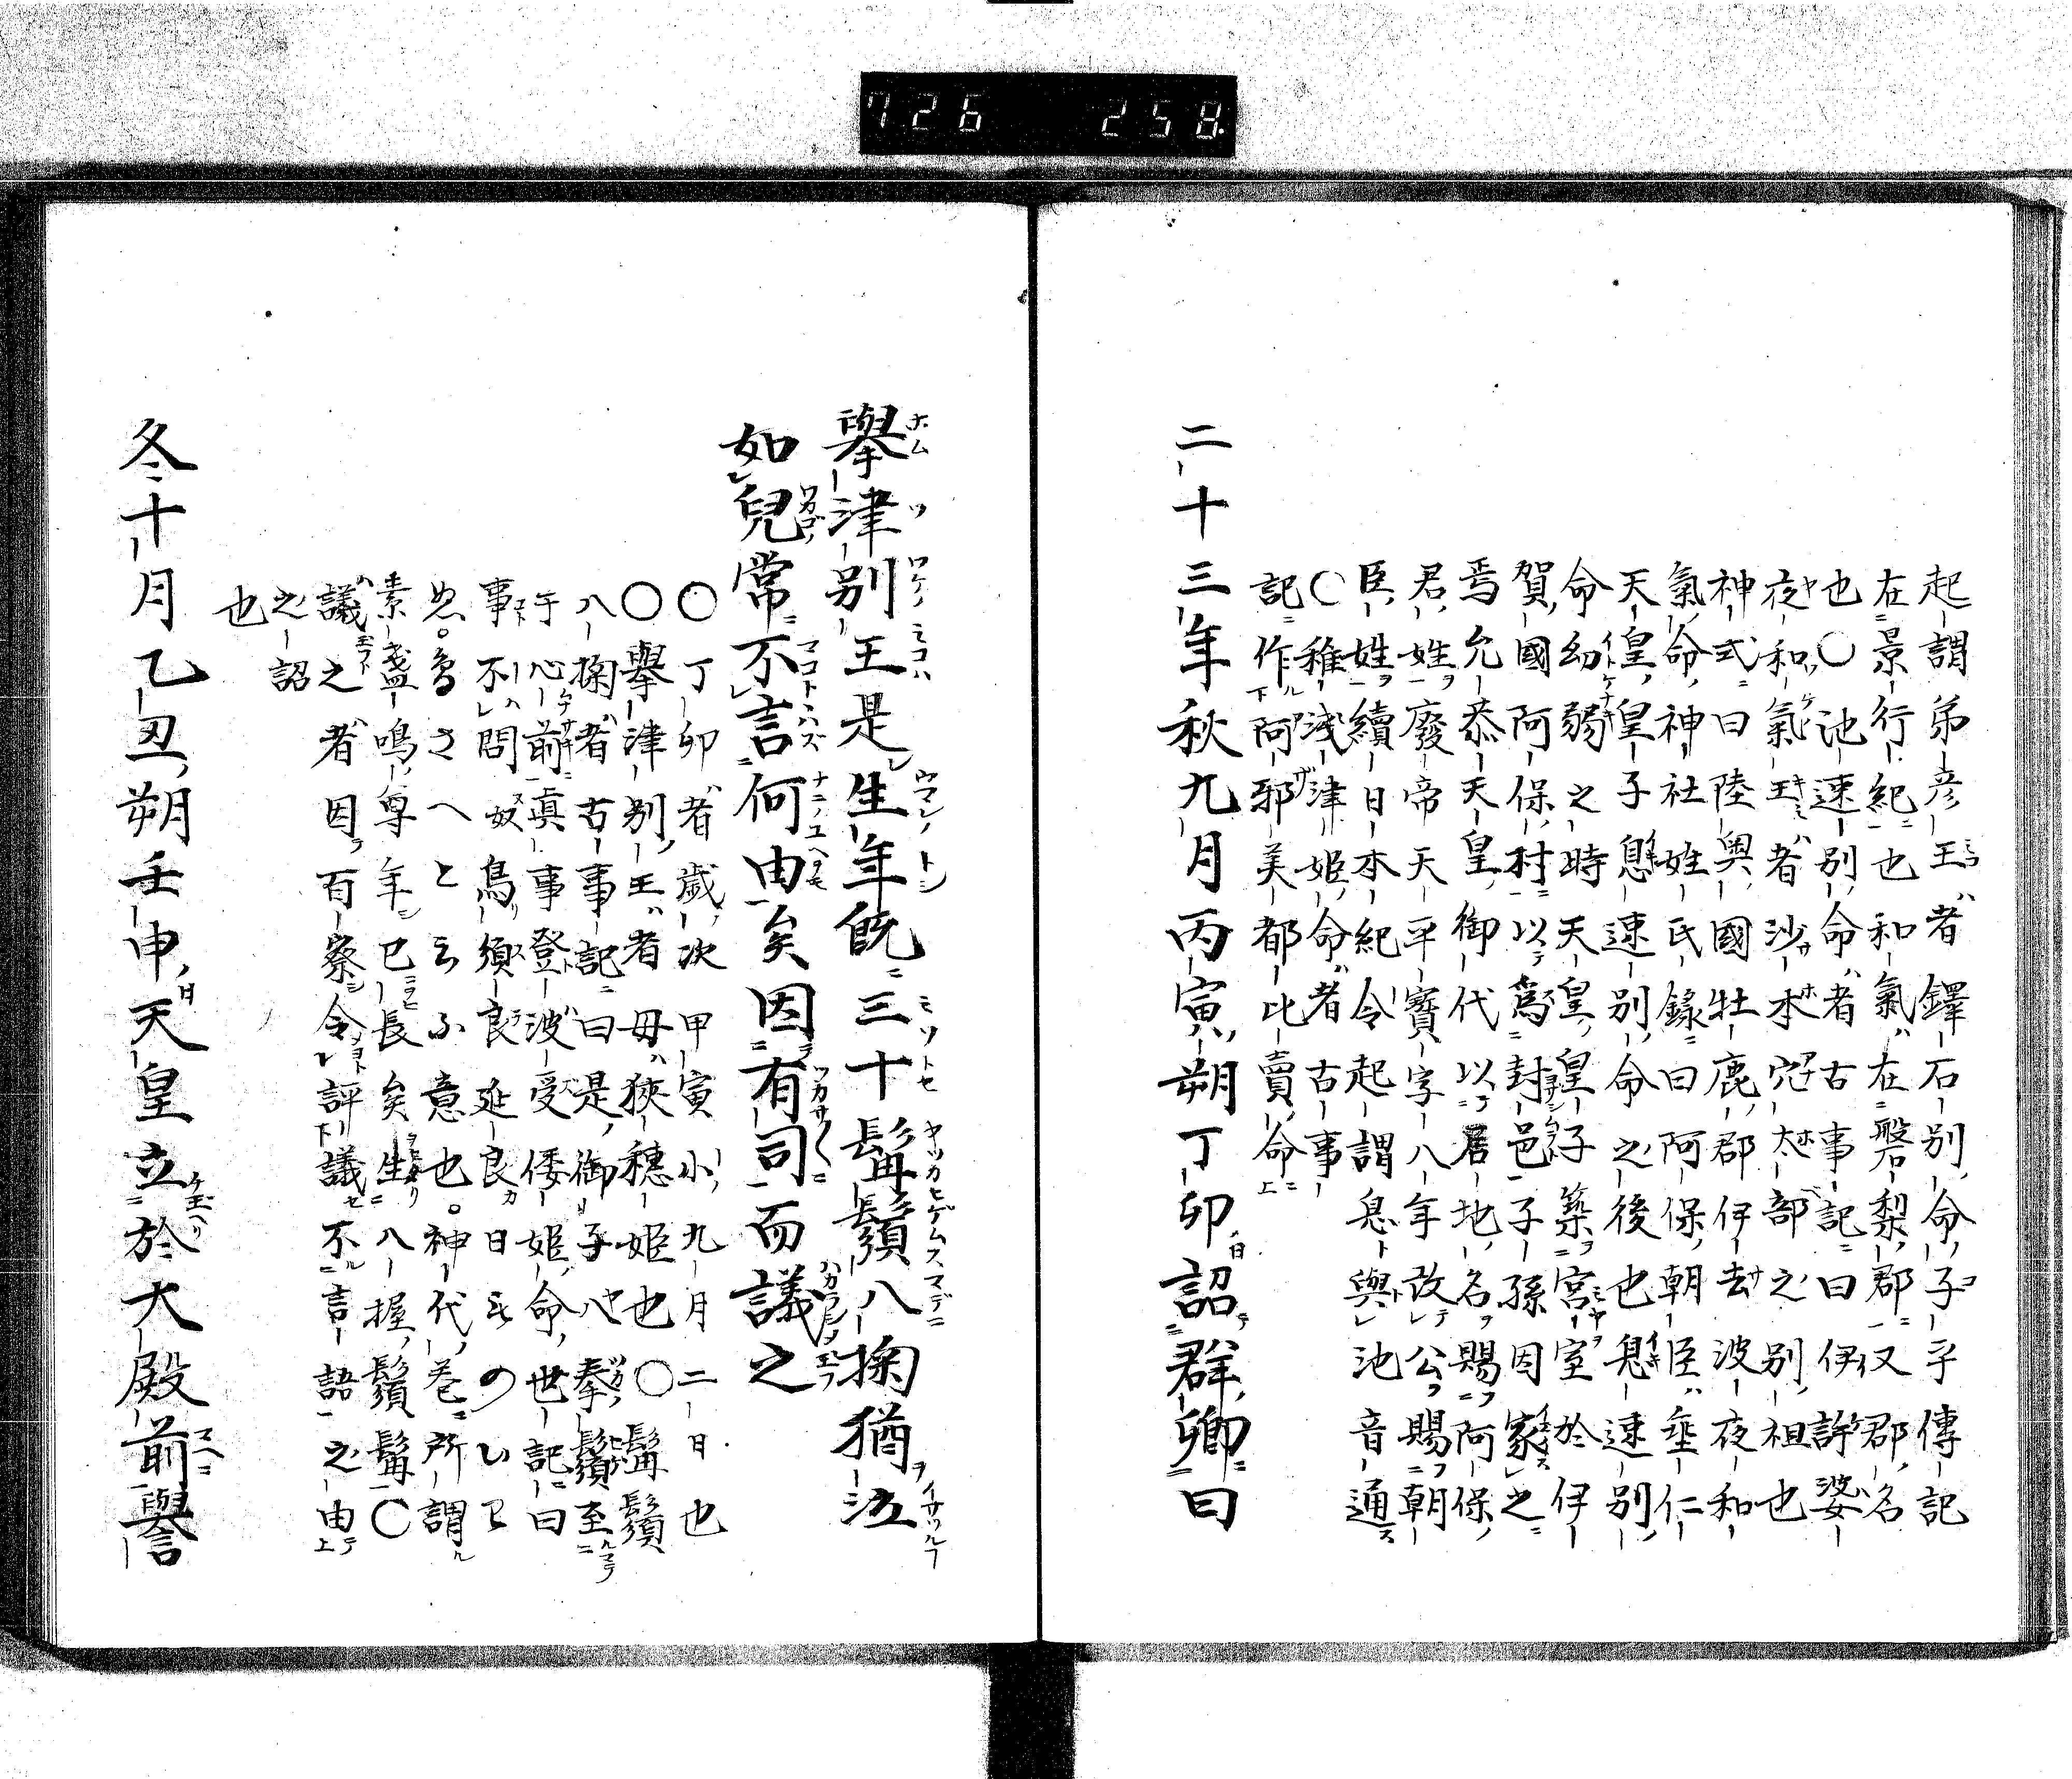 726 258
起謂弟彦王者鐸石別命子乎傳記
在景行紀也和氣在磐梨郡又郡名
也〇池速別命者古事記曰伊許婆
夜和氣王者沙本穴太部之別祖也
神式曰陸奥國牡鹿郡伊去波夜和
氣命神社姓氏録曰阿保朝臣垂仁
天皇皇子息速別命之後也息速別
命幼弱之時天皇皇子築宮室於伊
賀國阿保村以爲封邑子孫因家之
焉允恭天皇御代以居地名賜阿保
君姓廢帝天平寶字八年改公賜朝
臣姓續日本紀令起謂息與池音通
〇稚浅津姫命者古事
記作阿邪美都比賣命
二十三年秋九月丙寅朔丁卯詔群卿曰
擧津別王是生年既三十髯鬚八掬猶泣
如兒常不言何由矣因有司而議之
〇丁卯者歳次甲寅小九月二日也
〇擧津別王者母狹穂姫也〇髯鬚
八掬者古事記曰是御子八拳鬚至
于心前眞事登波受倭姫命世記曰
事不問奴鳥須良延良日ものいは
ぬ鳥さへと云ふ意也神代巻所謂
素盞鳴尊年已長矣生八握鬚髯〇
議之者因百寮令評議不言語之由
之詔
也
冬十月乙丑朔壬申天皇立於大殿前譽